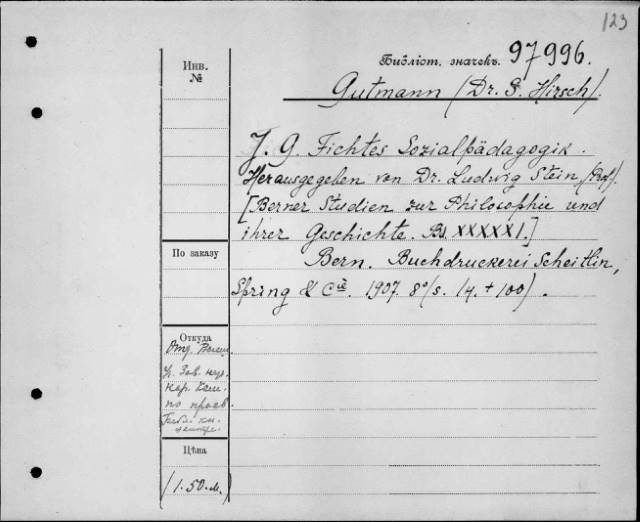 123
Библіот. значекъ. 97996.
Инв.
№
Gutmann (Dr. S. Hirsch).
J. G. Fichtes Sozialpädagogik.
Herausgegeben von Dr. Ludwig Stein (Prof.)
[Berner Studien zur Philosophie und
ihrer Geschichte. Bd. XXXXXI.]
Bern. Buchdruckerei Scheitlin,
Spring & Cie. 1907. 8° (s. /4. + 100).
По заказу
Откуда
Отд.
по
Цѣна
(1.50.м.)